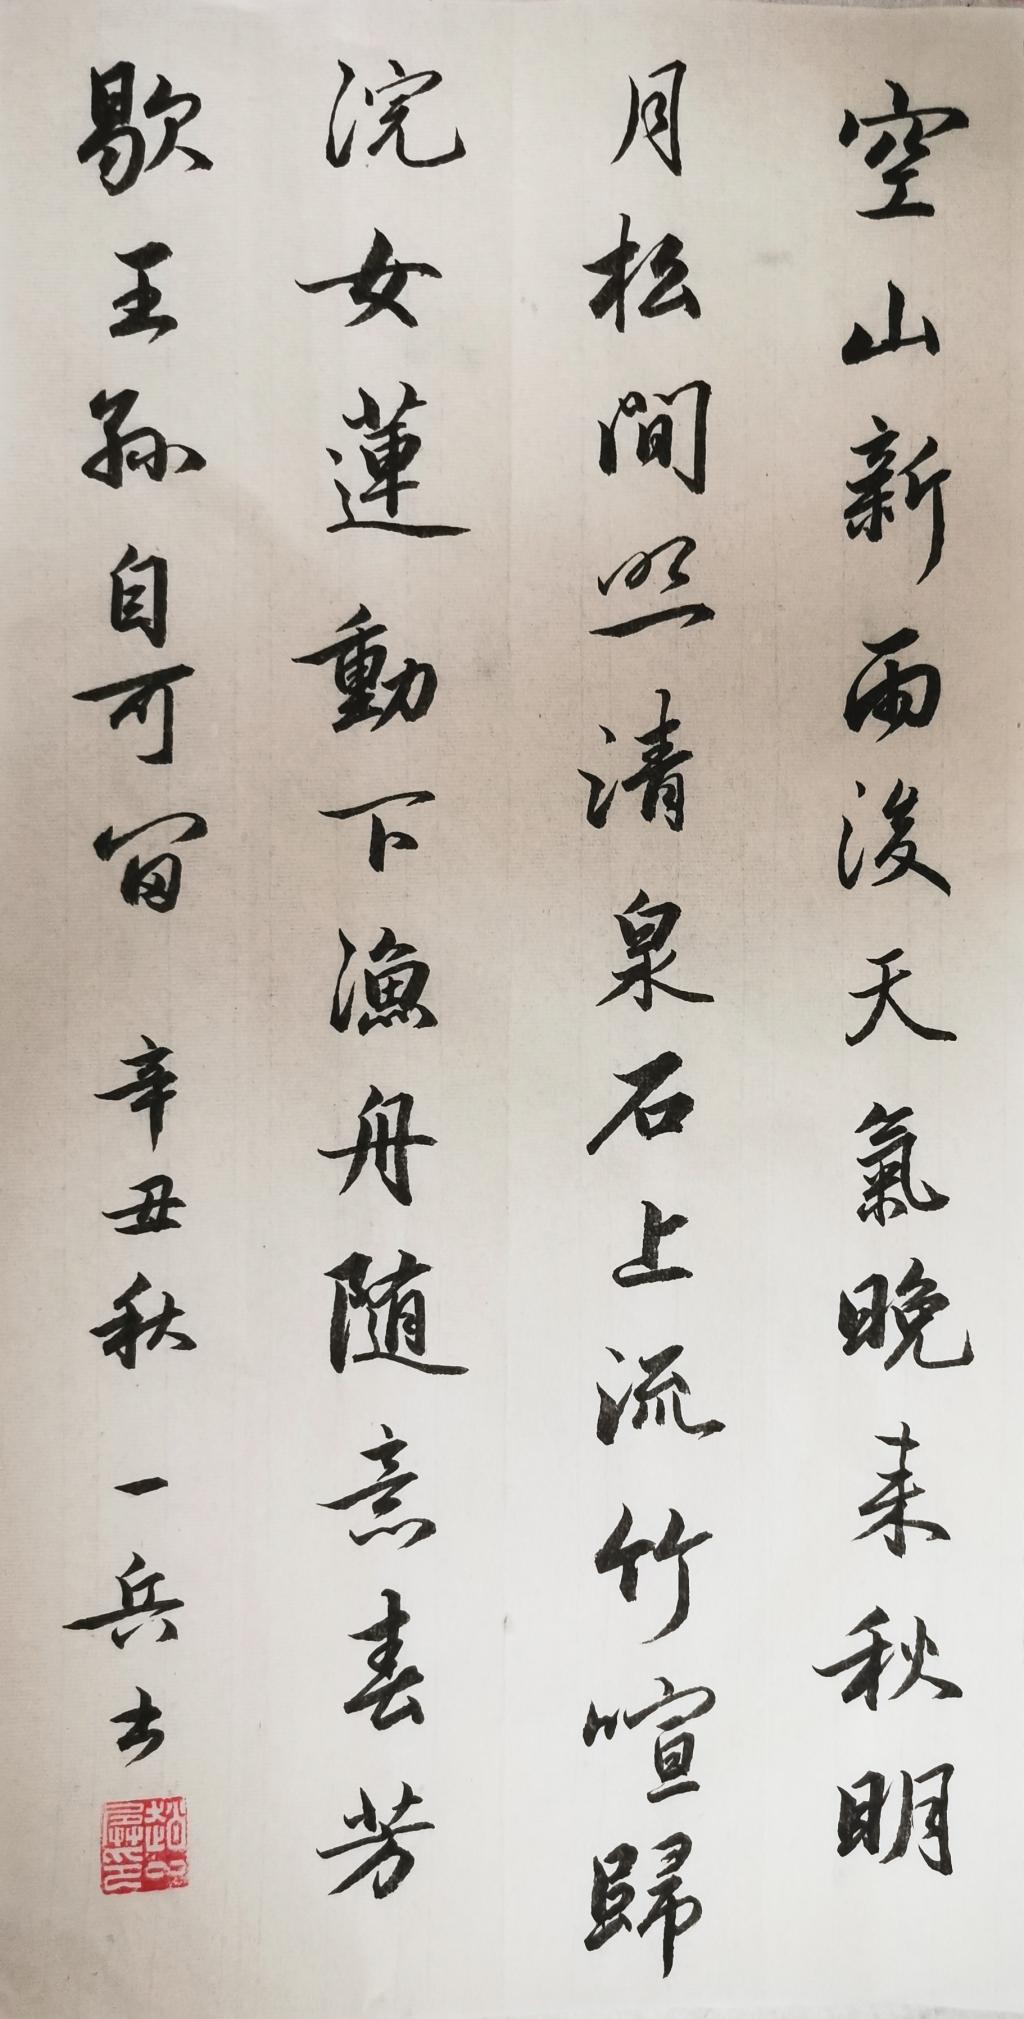 空山新雨後天氣晚来秋明
月松間照清泉石上流竹喧歸
浣女蓮動下漁舟随意春芳
歇王孫自可留 辛丑秋 一兵书